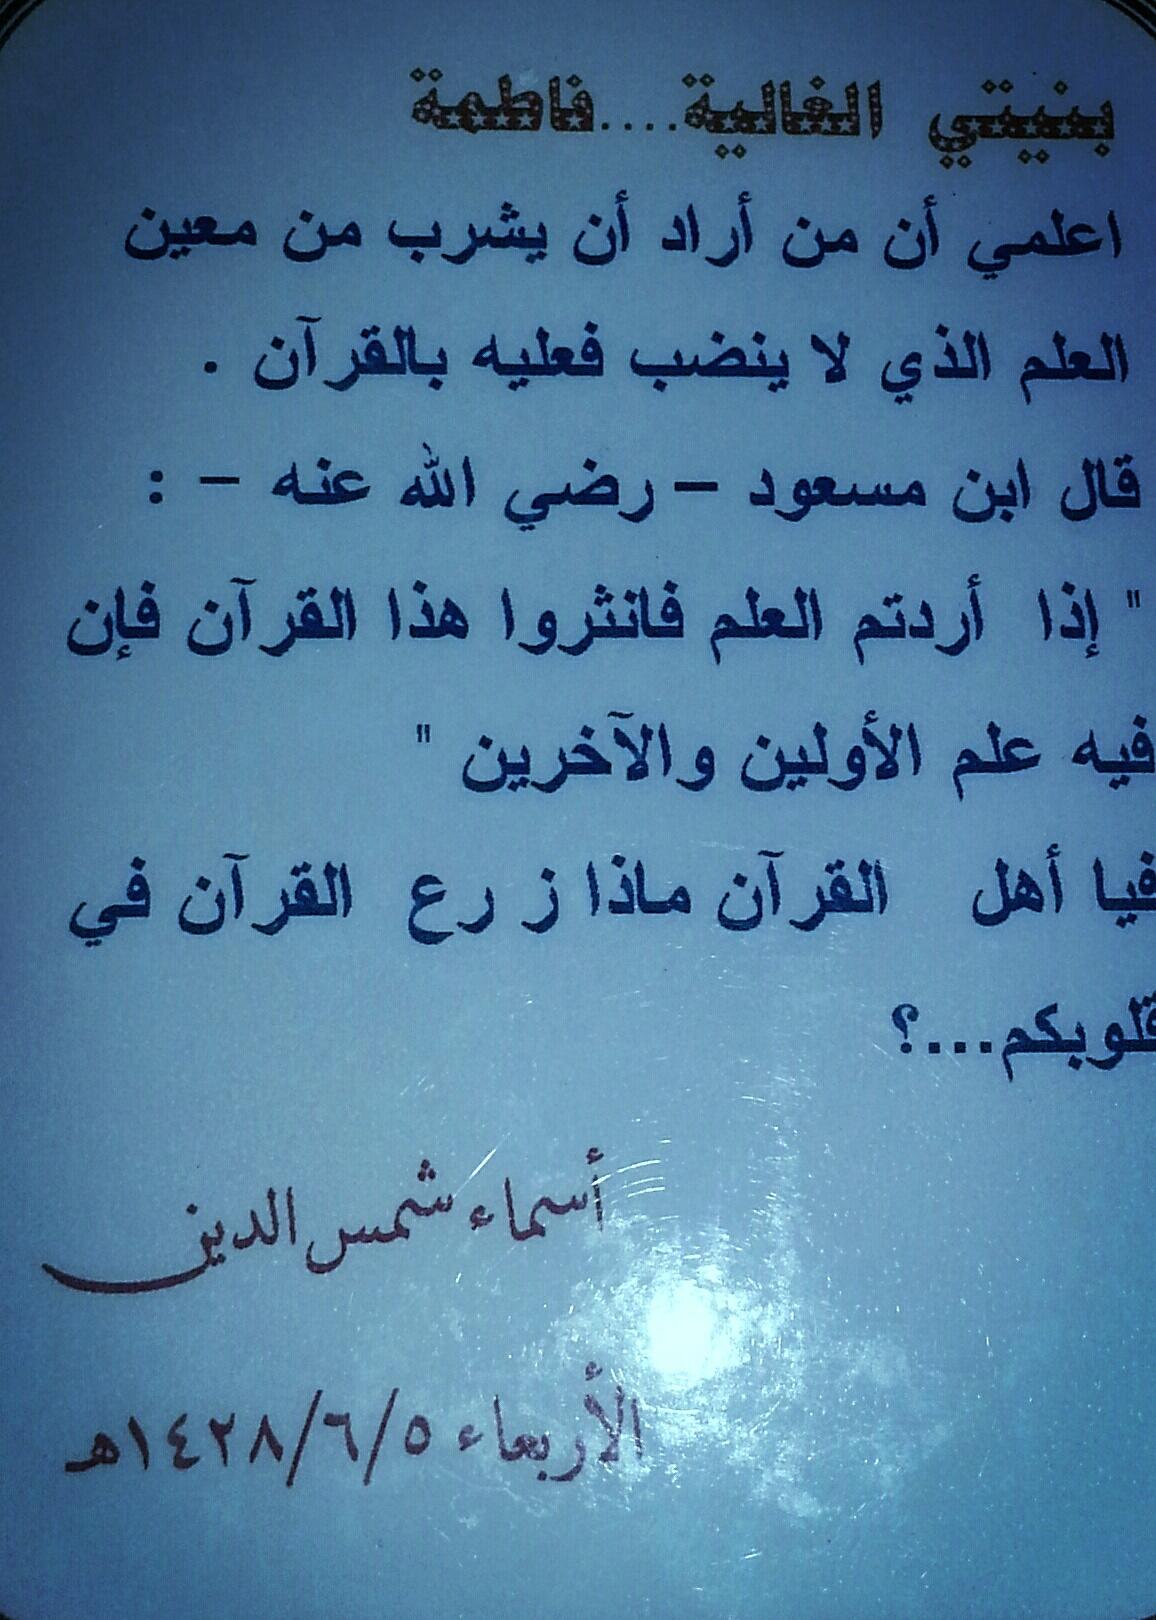 بنيتي الغالية....فاطمة
اعلمي أن من أراد أن يشرب من معين
العلم الذي لا ينضب فعليه بالقرآن .
قال ابن مسعود – رضي الله عنه – :
" إذا أردتم العلم فانثروا هذا القرآن فإن
فيه علم الأولين والآخرين "
فيا أهل القرآن ماذا ز رع القرآن في
قلوبكم...؟
أسماء شمس الدين
الأربعاء ١٤٢٨/٦/٥هـ